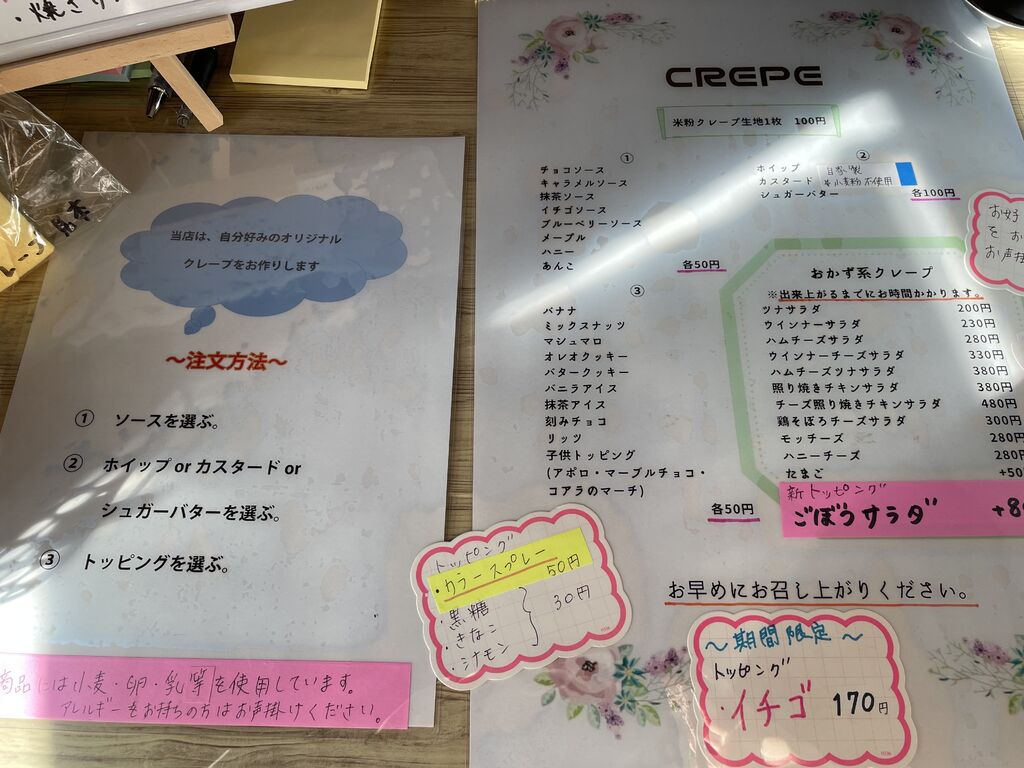 ・焼き
当店は、自分好みのオリジナル
クレープをお作りします
～注文方法～
① ソースを選ぶ。
② ホイップ or カスタード or
シュガーバターを選ぶ。
③ トッピングを選ぶ。
商品には小麦・卵・乳等を使用しています。
アレルギーをお持ちの方はお声掛けください。
CREPE
米粉クレープ生地1枚 100円
①
チョコソース
キャラメルソース
抹茶ソース
イチゴソース
ブルーベリーソース
メープル
ハニー
あんこ
各50円
②
ホイップ 自家製
カスタード ※小麦粉不使用
シュガーバター
各100円
③
バナナ
ミックスナッツ
マシュマロ
オレオクッキー
バタークッキー
バニラアイス
抹茶アイス
刻みチョコ
リッツ
子供トッピング
(アポロ・マーブルチョコ・
コアラのマーチ)
各50円
おかず系クレープ
※出来上がるまでにお時間かかります。
ツナサラダ 200円
ウインナーサラダ 230円
ハムチーズサラダ 280円
ウインナーチーズサラダ 330円
ハムチーズツナサラダ 380円
照り焼きチキンサラダ 380円
チーズ照り焼きチキンサラダ 480円
鶏そぼろチーズサラダ 300円
モッチーズ 280円
ハニーチーズ 280円
たまご +50
新トッピング
ごぼうサラダ +8
お好
を お
お声掛
お早めにお召し上がりください。
トッピング
・カラースプレー 50円
・黒糖
・きなこ 30円
・シナモン
～期間限定～
トッピング
・イチゴ 170円